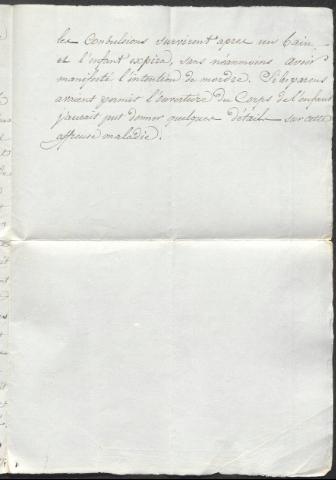 les Convulsions survinrent après un bain,
et l'enfant expira, sans néanmoins avoir
manifesté l'intention de mordre. Si les parens
avoient permis l'ouverture du Corps de l'enfant
j'aurait put donner quelques détails sur cette
affreuse maladie.